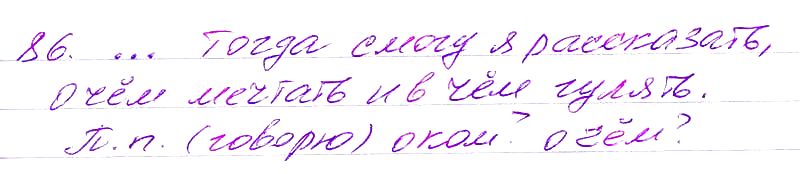 86. ... Тогда смогу я рассказать,
о чём мечтать и в чём гулять.
П.п. (говорю) о ком? о чём?